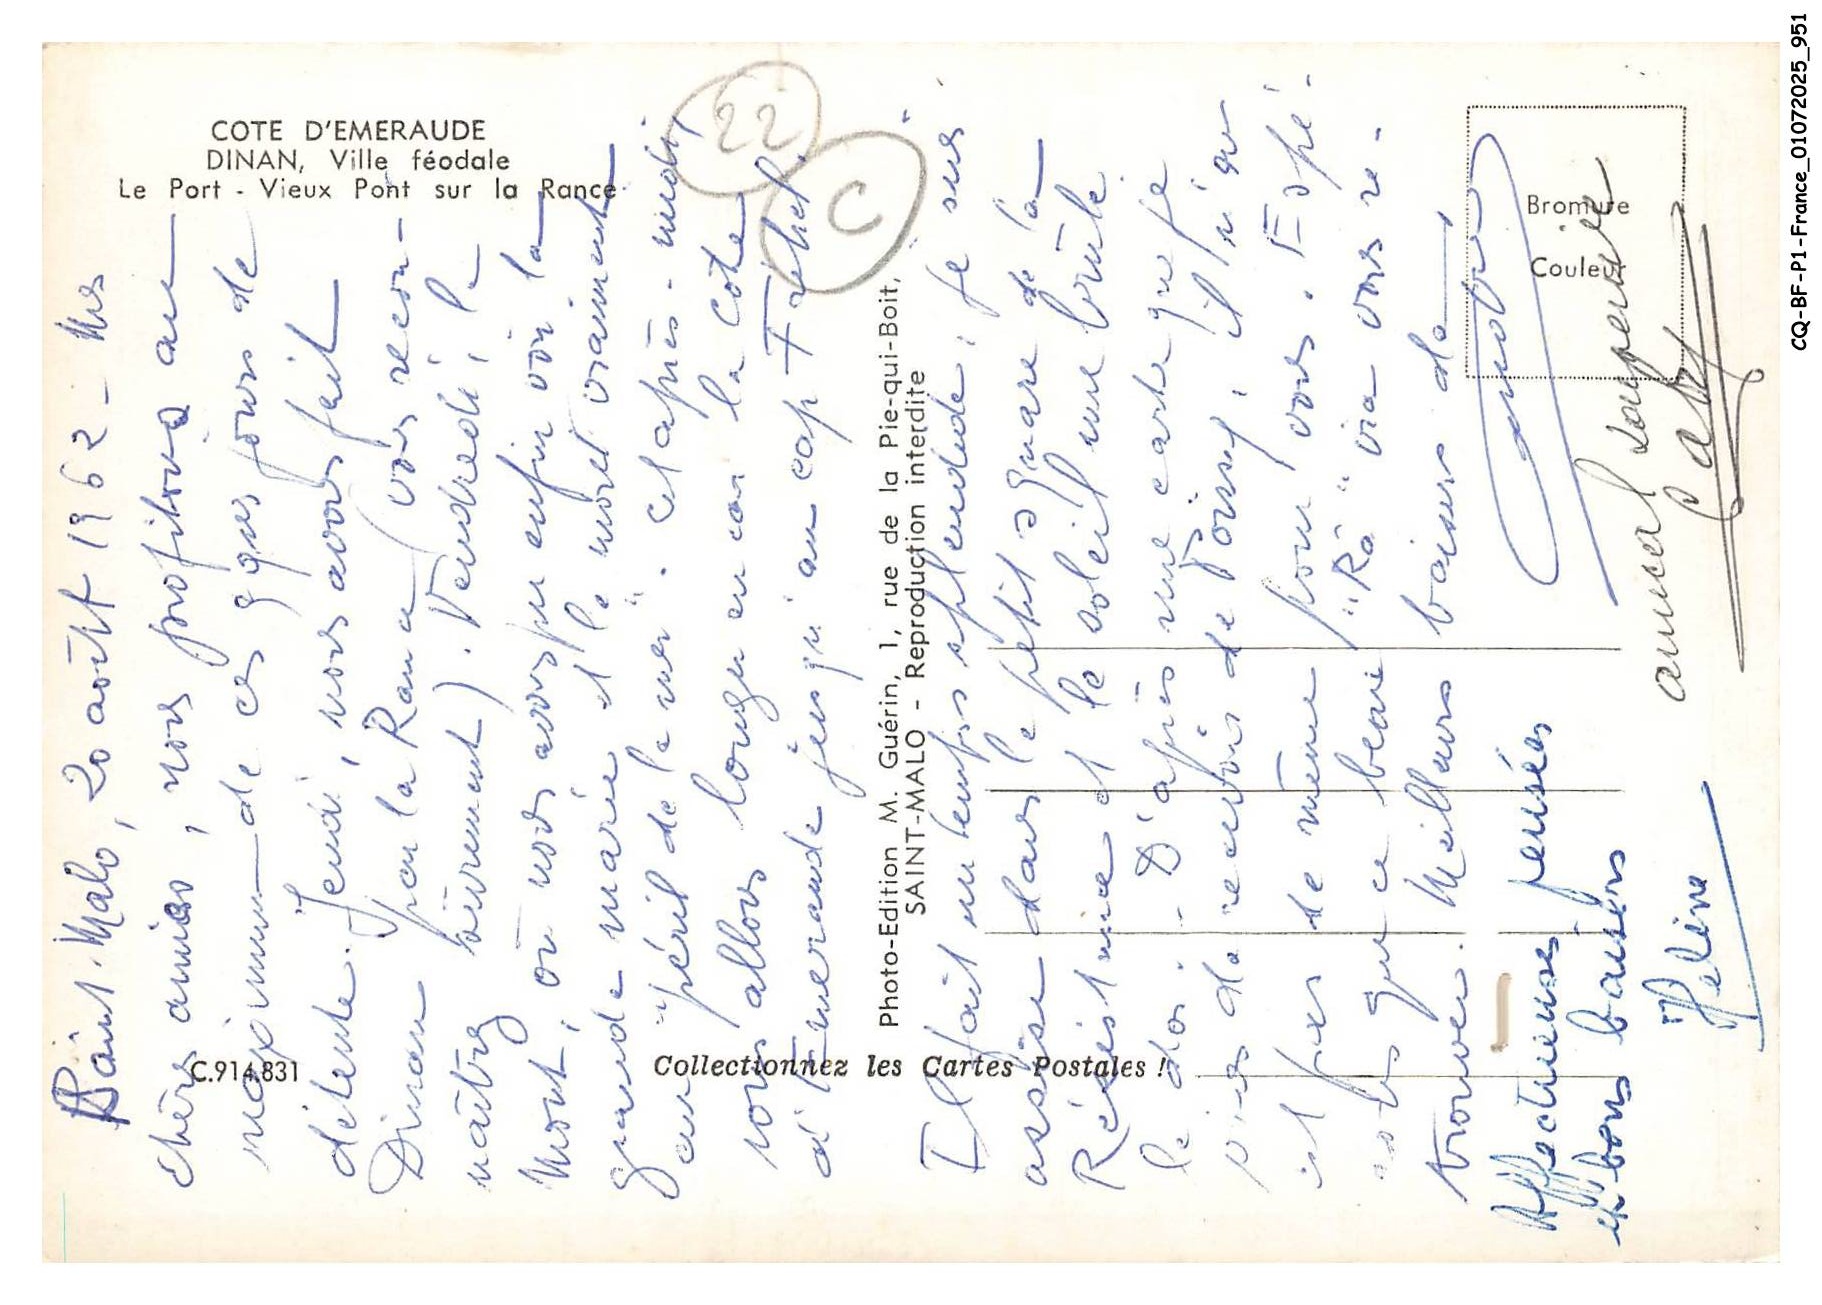 COTE D'EMERAUDE
DINAN, Ville féodale
Le Port - Vieux Pont sur la Rance
22
C
Bromure
Couleur
C.914.831
Collectionnez les Cartes Postales !
Photo-Edition M. Guérin, 1, rue de la Pie-qui-Boit,
SAINT-MALO - Reproduction interdite
Saint-Malo, 20 août 1962 - Mes
chères amies, nous profitons au
maximum de ces qques jours de
détente. Jeudi, nous avons fait
Dinan par la Rance (vous recon-
naîtrez sûrement). Vendredi, le
Mont, où nous avons pu enfin voir la
grande marée et le mont vraiment
"au péril de la mer". Cet après-midi,
nous allons longer en car la côte
d'Emeraude jusqu'au cap Fréhel.
Il fait un temps splendide; je suis
assise dans le petit square de la
Résistance et le soleil me brûle
le dos. - D'après une carte que je
viens de recevoir de Poissy, il n'en
est pas de même pour vous. Espé-
rons que ce beau "Râ" va vous re-
trouver. Meilleurs baisers de
Affectueuses pensées
et bons baisers
Hélène
amical souvenir
CQ-BF-P1-France_01072025_951